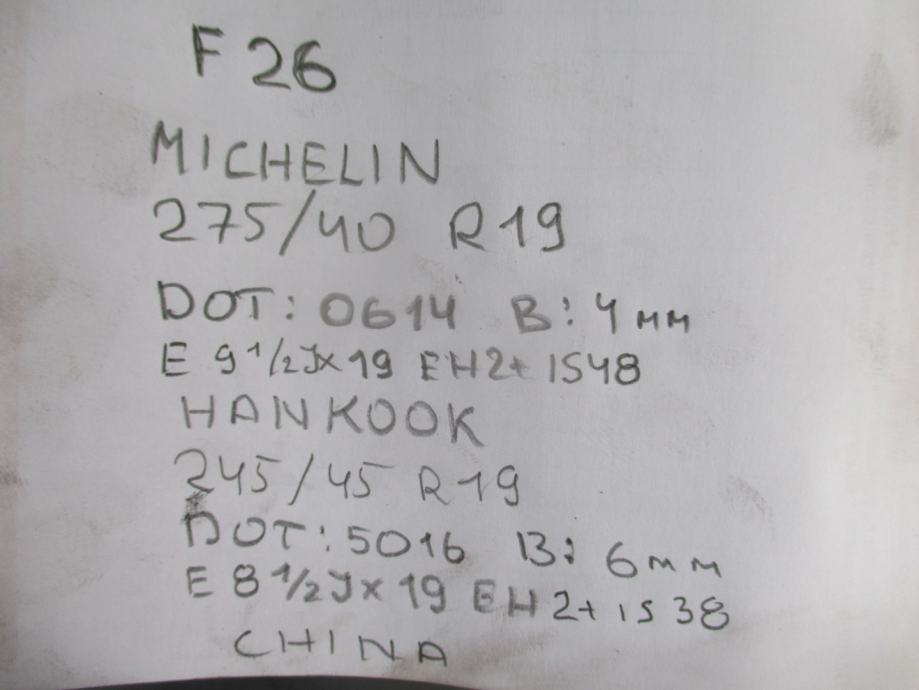 F 26
MICHELIN
275/40 R19
DOT: 0614 B: 4 мм
E 9 1/2Jx19 EH2+ IS48
HANKOOK
245/45 R19
DOT: 5016 B: 6мм
E 8 1/2Jx19 EH2+ IS 38
CHINA